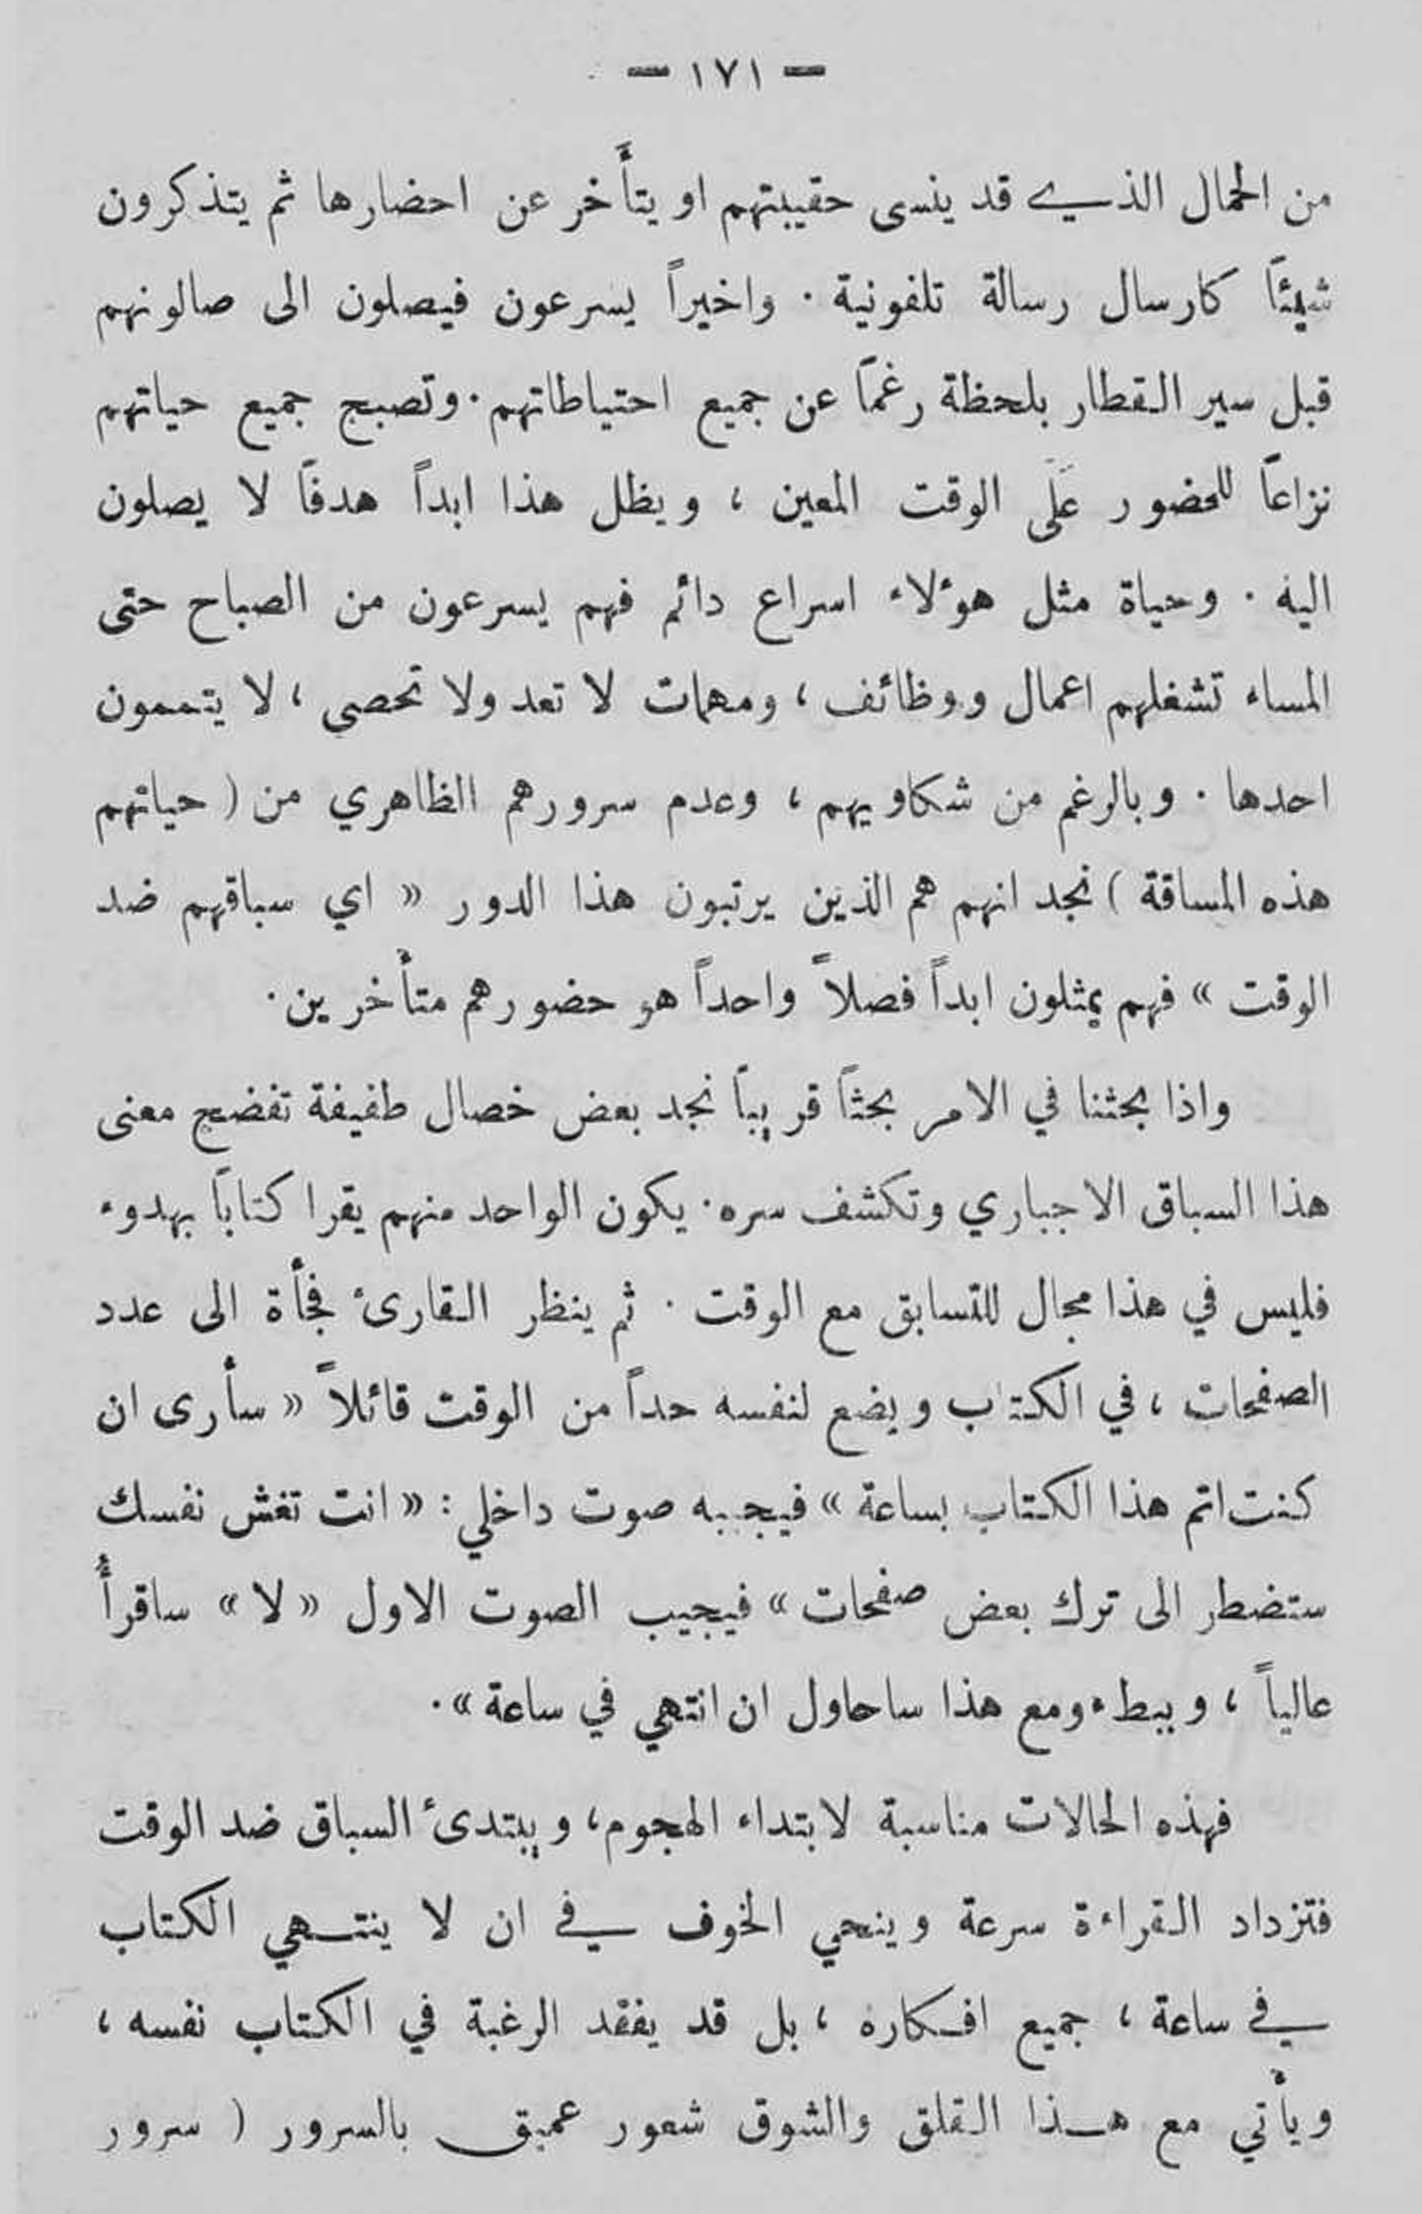 — ١٧١ —
من الحمال الذي قد ينسى حقيبتهم او يتأخر عن احضارها ثم يتذكرون
شيئاً كارسال رسالة تلفونية . واخيراً يسرعون فيصلون الى صالونهم
قبل سير القطار بلحظة رغماً عن جميع احتياطاتهم . وتصبح جميع حياتهم
نزاعاً للحضور عَلَى الوقت المعين ، ويظل هذا ابداً هدفاً لا يصلون
اليه . وحياة مثل هؤلاء اسراع دائم فهم يسرعون من الصباح حتى
المساء تشغلهم اعمال ووظائف ، ومهمات لا تعد ولا تحصى ، لا يتممون
احدها . وبالرغم من شكاويهم ، وعدم سرورهم الظاهري من ( حياتهم
هذه المساقة ) نجد انهم هم الذين يرتبون هذا الدور « اي سباقهم ضد
الوقت » فهم يمثلون ابداً فصلاً واحداً هو حضورهم متأخرين .
واذا بحثنا في الامر بحثاً قريباً نجد بعض خصال طفيفة تفضح معنى
هذا السباق الاجباري وتكشف سره . يكون الواحد منهم يقرا كتاباً بهدوء
فليس في هذا مجال للتسابق مع الوقت . ثم ينظر القارئ فجأة الى عدد
الصفحات ، في الكتاب ويضع لنفسه حداً من الوقت قائلاً « سأرى ان
كنت اتم هذا الكتاب بساعة » فيجيبه صوت داخلي : « انت تغش نفسك
ستضطر الى ترك بعض صفحات » فيجيب الصوت الاول « لا » ساقرأُ
عالياً ، وببطء ومع هذا ساحاول ان انتهي في ساعة » .
فهذه الحالات مناسبة لابتداء الهجوم ، ويبتدئ السباق ضد الوقت
فتزداد القراءة سرعة وينحي الخوف في ان لا ينتهي الكتاب
في ساعة ، جميع افكاره ، بل قد يفقد الرغبة في الكتاب نفسه ،
ويأتي مع هذا القلق والشوق شعور عميق بالسرور ( سرور